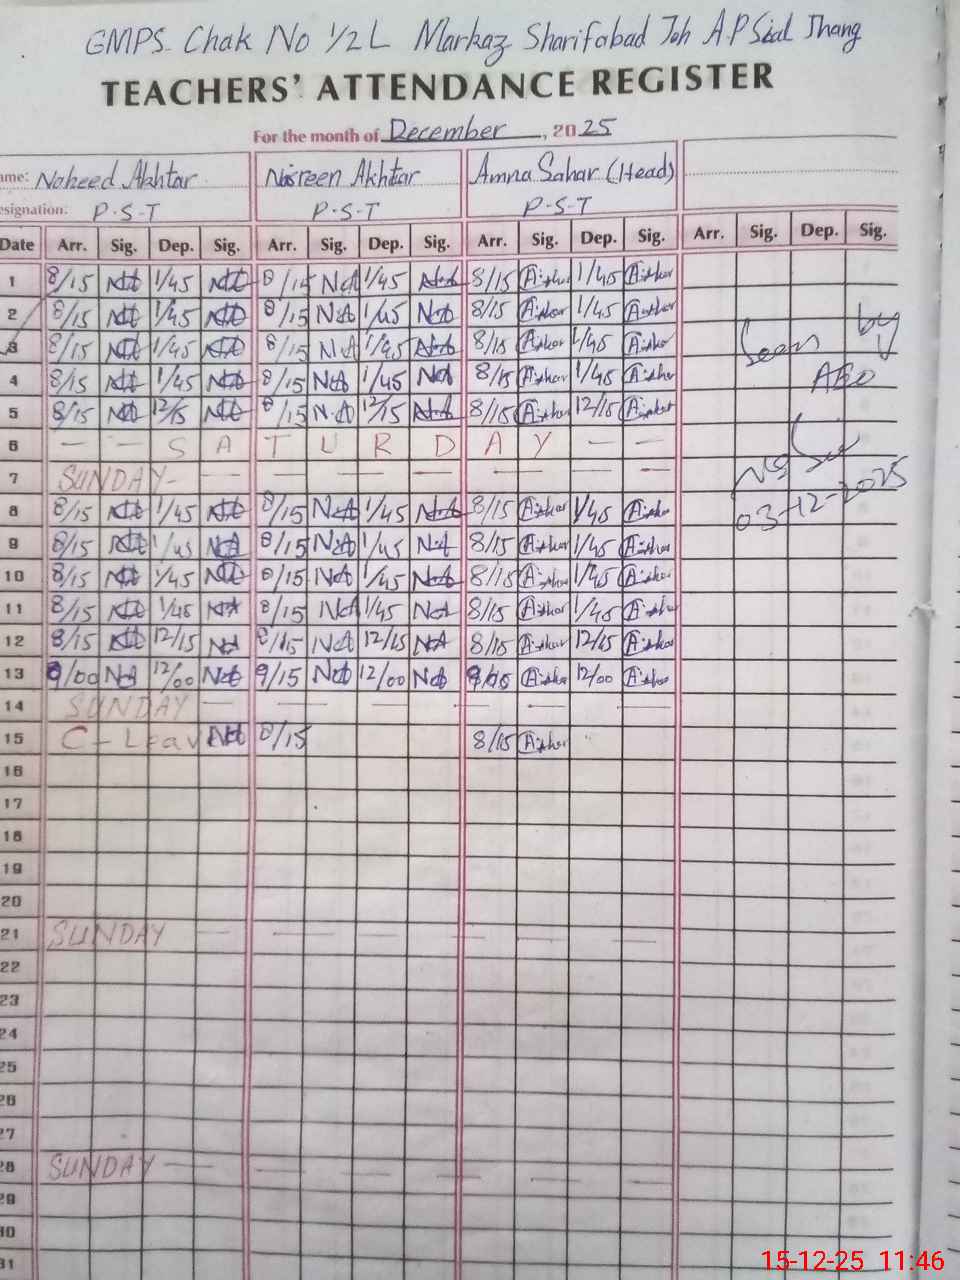 GMPS Chak No 1/2L Markaz Sharifabad Teh A.P Sial Jhang
TEACHERS' ATTENDANCE REGISTER
For the month of December, 2025
ame: Naheed Akhtar Nasreen Akhtar Amna Sahar (Head)
esignation: P.S.T P.S.T P.S.T
Date Arr. Sig. Dep. Sig. Arr. Sig. Dep. Sig. Arr. Sig. Dep. Sig. Arr. Sig. Dep. Sig.
1 8/15 NA 1/45 NA 8/15 NA 1/45 NA 8/15 1/45
2 8/15 NA 1/45 NA 8/15 NA 1/45 NA 8/15 1/45
3 8/15 NA 1/45 NA 8/15 NA 1/45 NA 8/15 1/45
Seen by
4 8/15 NA 1/45 NA 8/15 NA 1/45 NA 8/15 1/45
AEO
5 8/15 NA 12/15 NA 8/15 NA 12/15 NA 8/15 12/15
6 — — S A T U R D A Y — —
7 SUNDAY — — — — — — — — —
8 8/15 NA 1/45 NA 8/15 NA 1/45 NA 8/15 1/45
03-12-2025
9 8/15 NA 1/45 NA 8/15 NA 1/45 NA 8/15 1/45
10 8/15 NA 1/45 NA 8/15 NA 1/45 NA 8/15 1/45
11 8/15 NA 1/45 NA 8/15 NA 1/45 NA 8/15 1/45
12 8/15 NA 12/15 NA 8/15 NA 12/15 NA 8/15 12/15
13 9/00 NA 12/00 NA 9/15 NA 12/00 NA 12/00
14 SUNDAY — — — — — — —
15 C-Leav NA 8/15 8/15
16
17
18
19
20
21 SUNDAY — — — — — — —
22
23
24
25
26
27
28 SUNDAY — — — — — — —
29
30
31
15-12-25 11:46